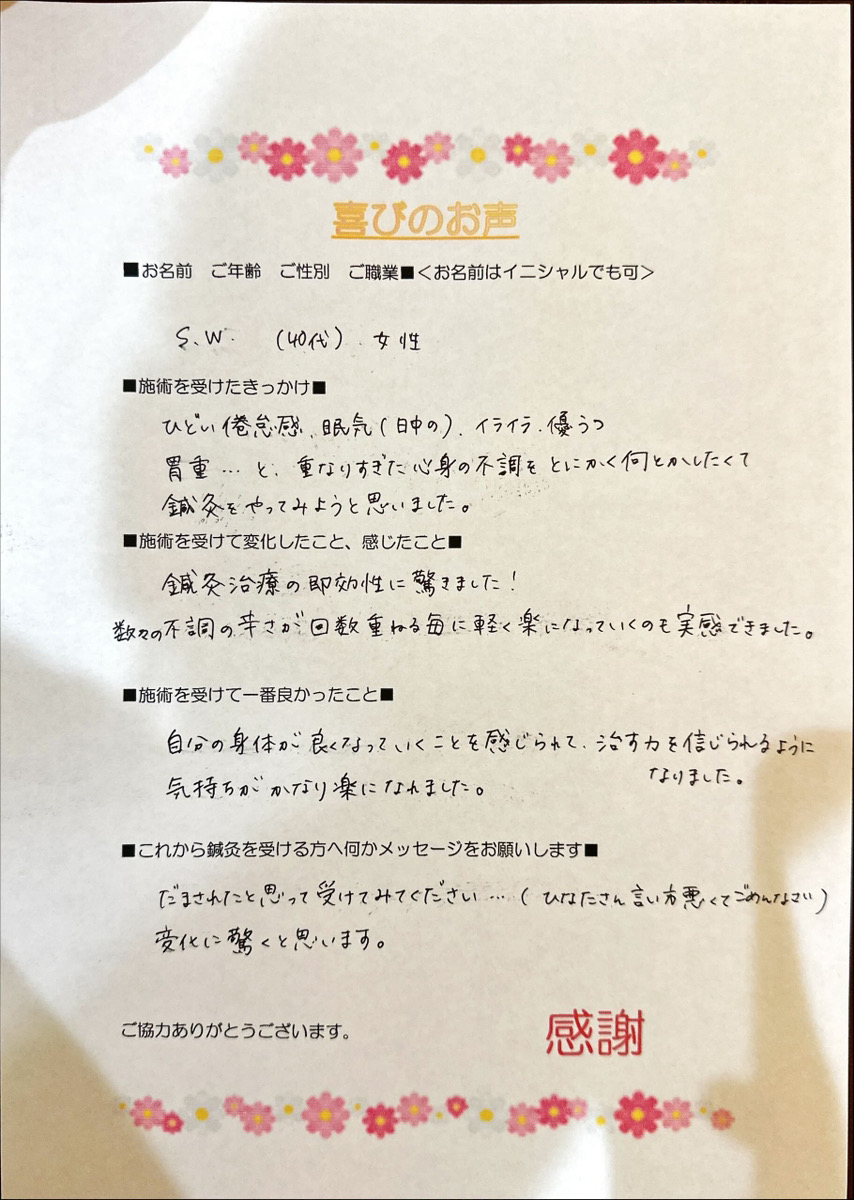 喜びのお声
■お名前 ご年齢 ご性別 ご職業■<お名前はイニシャルでも可>
S.W. (40代). 女性
■施術を受けたきっかけ■
ひどい倦怠感、眠気(日中の)、イライラ、優うつ
胃重…と、重なりすぎた心身の不調をとにかく何とかしたくて
鍼灸をやってみようと思いました。
■施術を受けて変化したこと、感じたこと■
鍼灸治療の即効性に驚きました!
数々の不調の辛さが回数重ねる毎に軽く楽になっていくのも実感できました。
■施術を受けて一番良かったこと■
自分の身体が良くなっていくことを感じられて、治す力を信じられるように
なりました。
気持ちがかなり楽になれました。
■これから鍼灸を受ける方へ何かメッセージをお願いします■
だまされたと思って受けてみてください…(ひなたさん言い方悪くてごめんなさい)
変化に驚くと思います。
ご協力ありがとうございます。
感謝